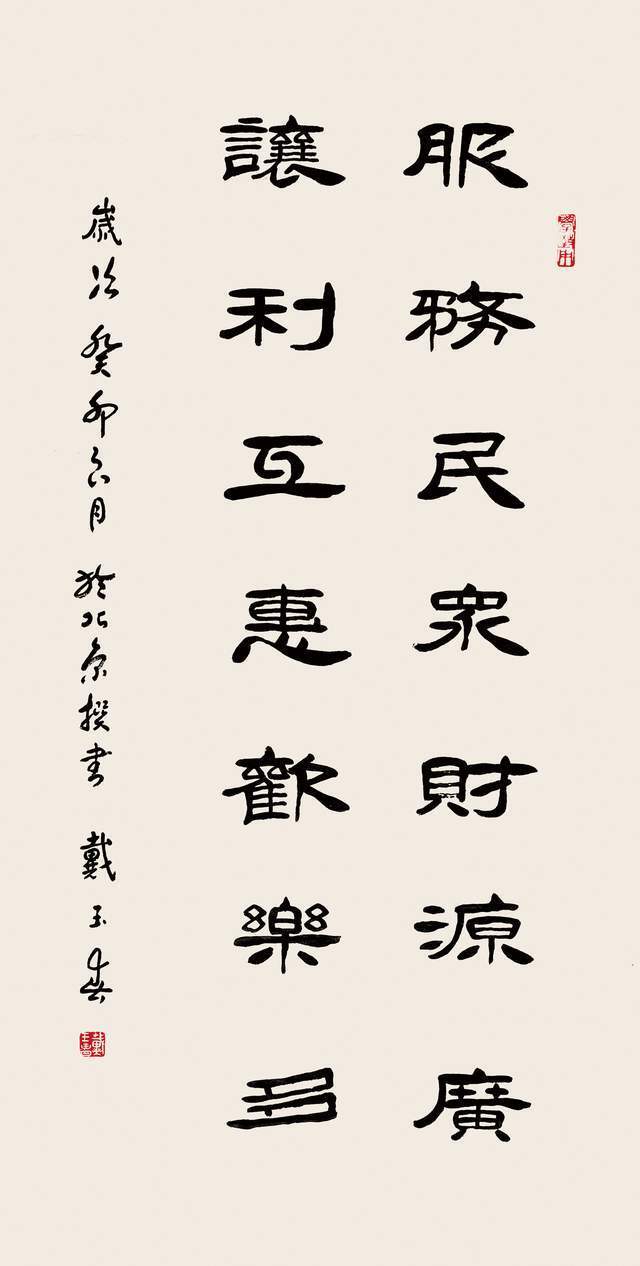 服務民衆財源廣
讓利互惠歡樂多
歲次癸卯六月於北京撰書戴玉春